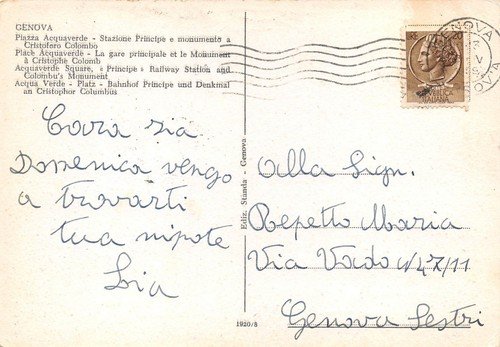 GENOVA
Piazza Acquaverde - Stazione Principe e monumento a
Cristoforo Colombo
Place Acquaverde - La gare principale et le Monument
à Cristophe Colomb
Acquaverde Square, « Principe » Railway Station and
Columbu's Monument
Acqua Verde - Platz - Bahnhof Principe und Denkmal
an Cristophor Columbus
GENOVA
20
ITALIANA
Cara zia
Domenica vengo
a trovarti
tua nipote
Lia
Ediz. Stánda - Genova
1920/8
Alla Sign.
Repetto Maria
Via Vado N/47/11
Genova Sestri